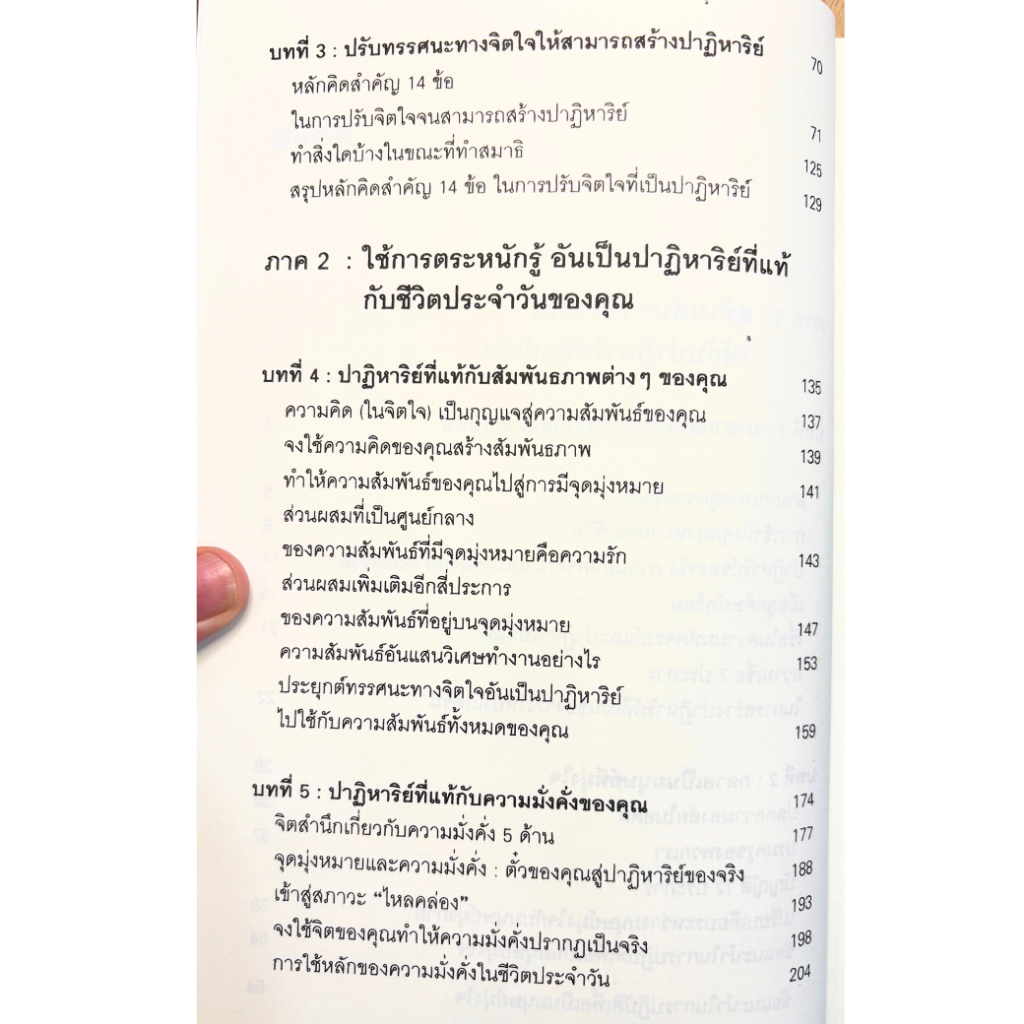 บทที่ 3 : ปรับทรรศนะทางจิตใจให้สามารถสร้างปาฏิหาริย์ 70
หลักคิดสำคัญ 14 ข้อ
ในการปรับจิตใจจนสามารถสร้างปาฏิหาริย์ 71
ทำสิ่งใดบ้างในขณะที่ทำสมาธิ 125
สรุปหลักคิดสำคัญ 14 ข้อ ในการปรับจิตใจที่เป็นปาฏิหาริย์ 129
ภาค 2 : ใช้การตระหนักรู้ อันเป็นปาฏิหาริย์ที่แท้
กับชีวิตประจำวันของคุณ
บทที่ 4 : ปาฏิหาริย์ที่แท้กับสัมพันธภาพต่างๆ ของคุณ 135
ความคิด (ในจิตใจ) เป็นกุญแจสู่ความสัมพันธ์ของคุณ 137
จงใช้ความคิดของคุณสร้างสัมพันธภาพ 139
ทำให้ความสัมพันธ์ของคุณไปสู่การมีจุดมุ่งหมาย 141
ส่วนผสมที่เป็นศูนย์กลาง
ของความสัมพันธ์ที่มีจุดมุ่งหมายคือความรัก 143
ส่วนผสมเพิ่มเติมอีกสี่ประการ
ของความสัมพันธ์ที่อยู่บนจุดมุ่งหมาย 147
ความสัมพันธ์อันแสนวิเศษทำงานอย่างไร 153
ประยุกต์ทรรศนะทางจิตใจอันเป็นปาฏิหาริย์
ไปใช้กับความสัมพันธ์ทั้งหมดของคุณ 159
บทที่ 5 : ปาฏิหาริย์ที่แท้กับความมั่งคั่งของคุณ 174
จิตสำนึกเกี่ยวกับความมั่งคั่ง 5 ด้าน 177
จุดมุ่งหมายและความมั่งคั่ง : ตั๋วของคุณสู่ปาฏิหาริย์ของจริง 188
เข้าสู่สภาวะ “ไหลคล่อง” 193
จงใช้จิตของคุณทำให้ความมั่งคั่งปรากฏเป็นจริง 198
การใช้หลักของความมั่งคั่งในชีวิตประจำวัน 204